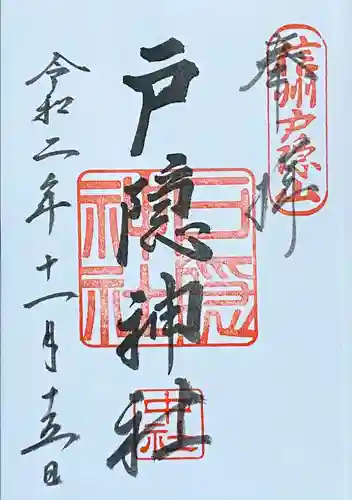 奉拝
信州戸隠山
戸隠神社
戸隠神社
中社
令和二年十一月十五日